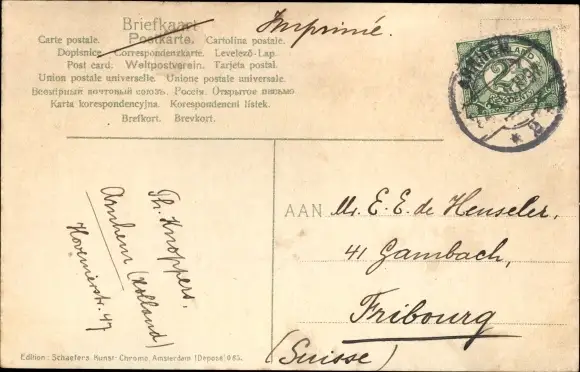 Briefkaart
Carte postale. Postkarte. Cartolina postale.
Dopisnice Correspondenzkarte. Levelező-Lap.
Post card. Weltpostverein. Tarjeta postal.
Union postale universelle. Unione postale universale.
Всемірный почтовый союзъ. Россія. Открытое письмо
Karta korespondencyjna. Korespondencni listek.
Brefkort. Brevkort.
Imprimé.
ARNHEM
AAN Mr. E. E. de Henseler,
41 Gambach,
Fribourg
(Suisse)
Th. Knoppers.
Arnhem (Holland)
47
Edition: Schaefers Kunst-Chromo, Amsterdam (Déposé) 065.